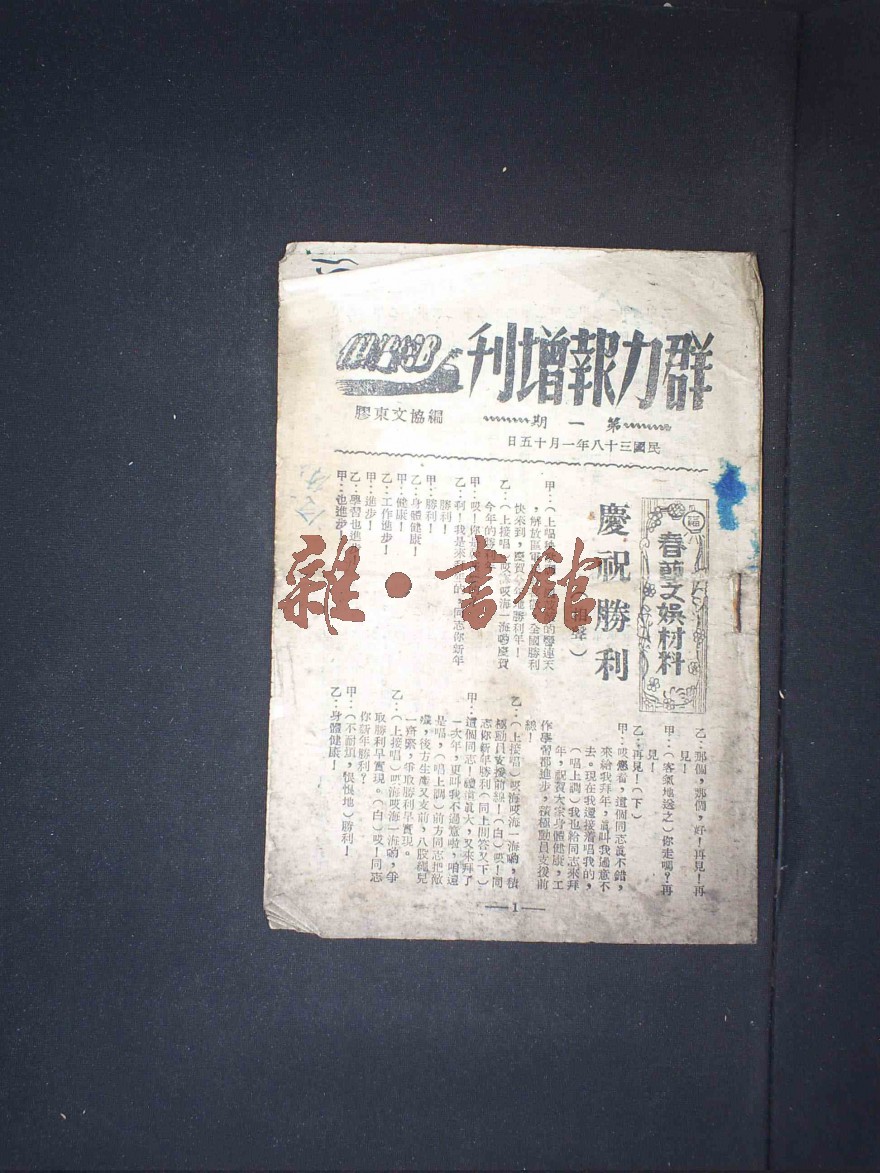 群力報增刊
第一期
民國三十八年一月十五日
膠東文協編
福
春節文娛材料
慶祝勝利
相聲）
甲：（上唱
的聲連天
，解放區軍
全國勝利
快來到，慶賀
勝利年！
乙：（上接唱）哎海哎海一海喲慶賀
今年的勝利年
甲：哎！你
乙：利！我是來
同志你新年
勝利！
甲：勝利！
乙：身體健康！
甲：健康！
乙：工作進步！
甲：進步！
乙：學習也進步！
甲：也進步！
乙：那個，那個，好！再見！再
見！
甲：（客氣地送之）你走嗎？再
見！
乙：再見！（下）
甲：哎您看，這個同志眞不錯，
來給我拜年，眞叫我過意不
去。現在我還接着唱我的，
（唱上調）我也給同志來拜
年，祝賀大家身體健康，工
作學習都進步，積極動員支援前
線！
乙：（上接唱）哎海哎海一海喲，積
極動員支援前線！（白）哎！同
志你新年勝利（同上問答又下）
甲：這個同志！禮濱眞大，又來拜了
一次年，更叫我不過意啦，咱還
是唱，（唱上調）前方同志把敵
殲，後方生產又支前，八股繩兒
一齊緊，爭取勝利早實現。
乙：（上接唱）哎海哎海一海喲，爭
取勝利早實現。（白）哎！同志
你新年勝利？
甲：（不耐煩，恨恨地）勝利！
乙：身體健康！
—1—
雜·書館